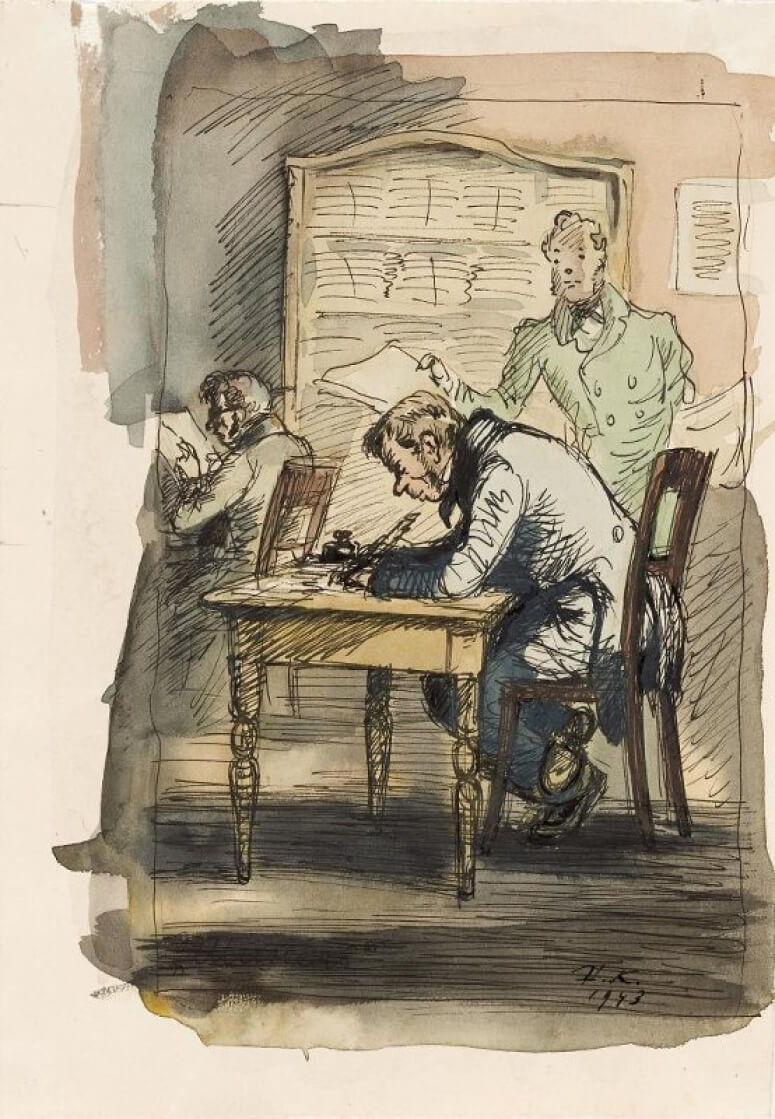 K. K.
1943